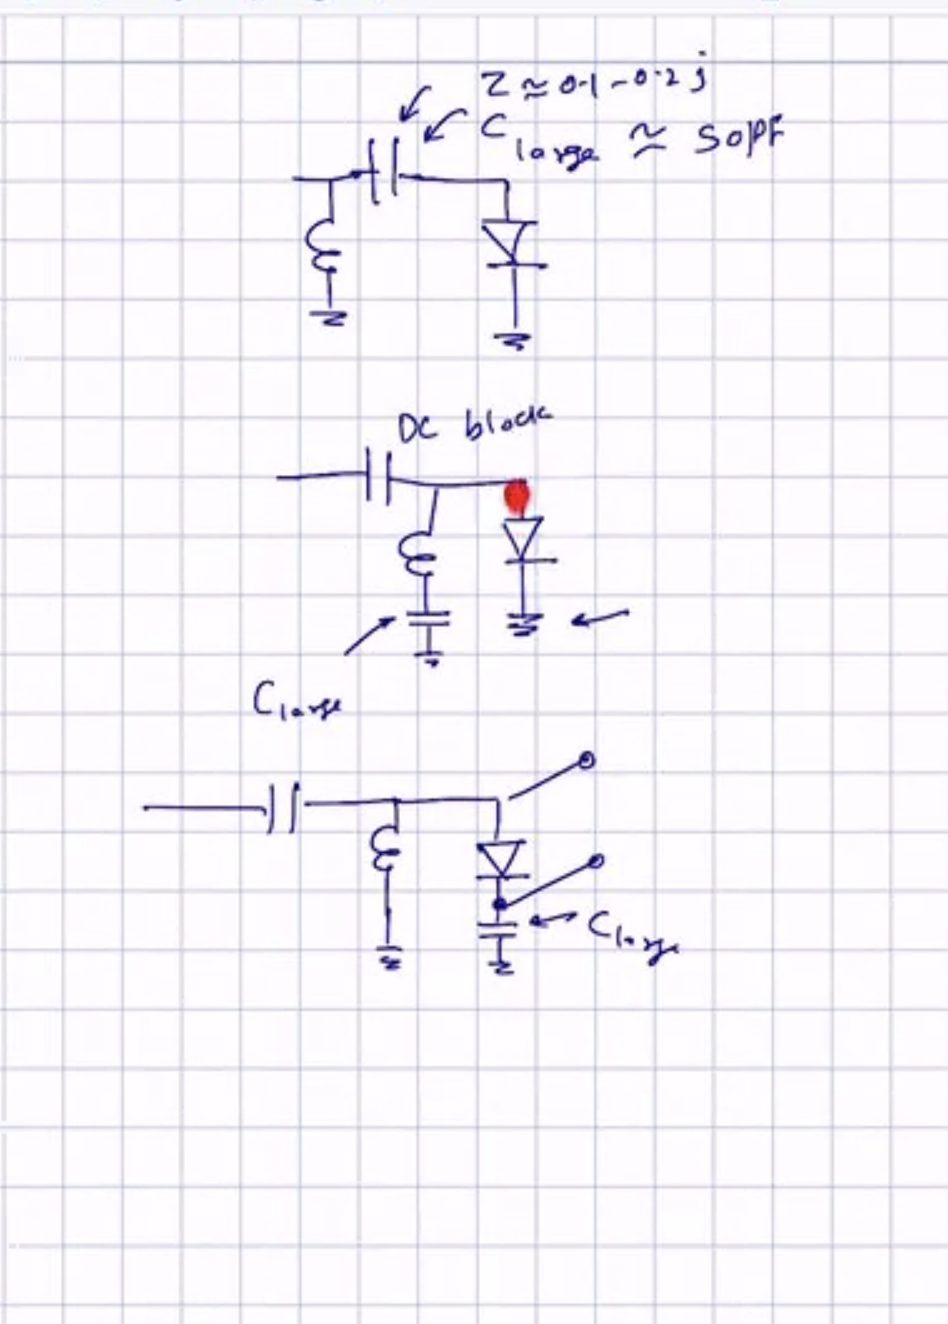 Z ≈ 0.1 - 0.2 j
C large ≈ 50pF
DC block
C large
C large